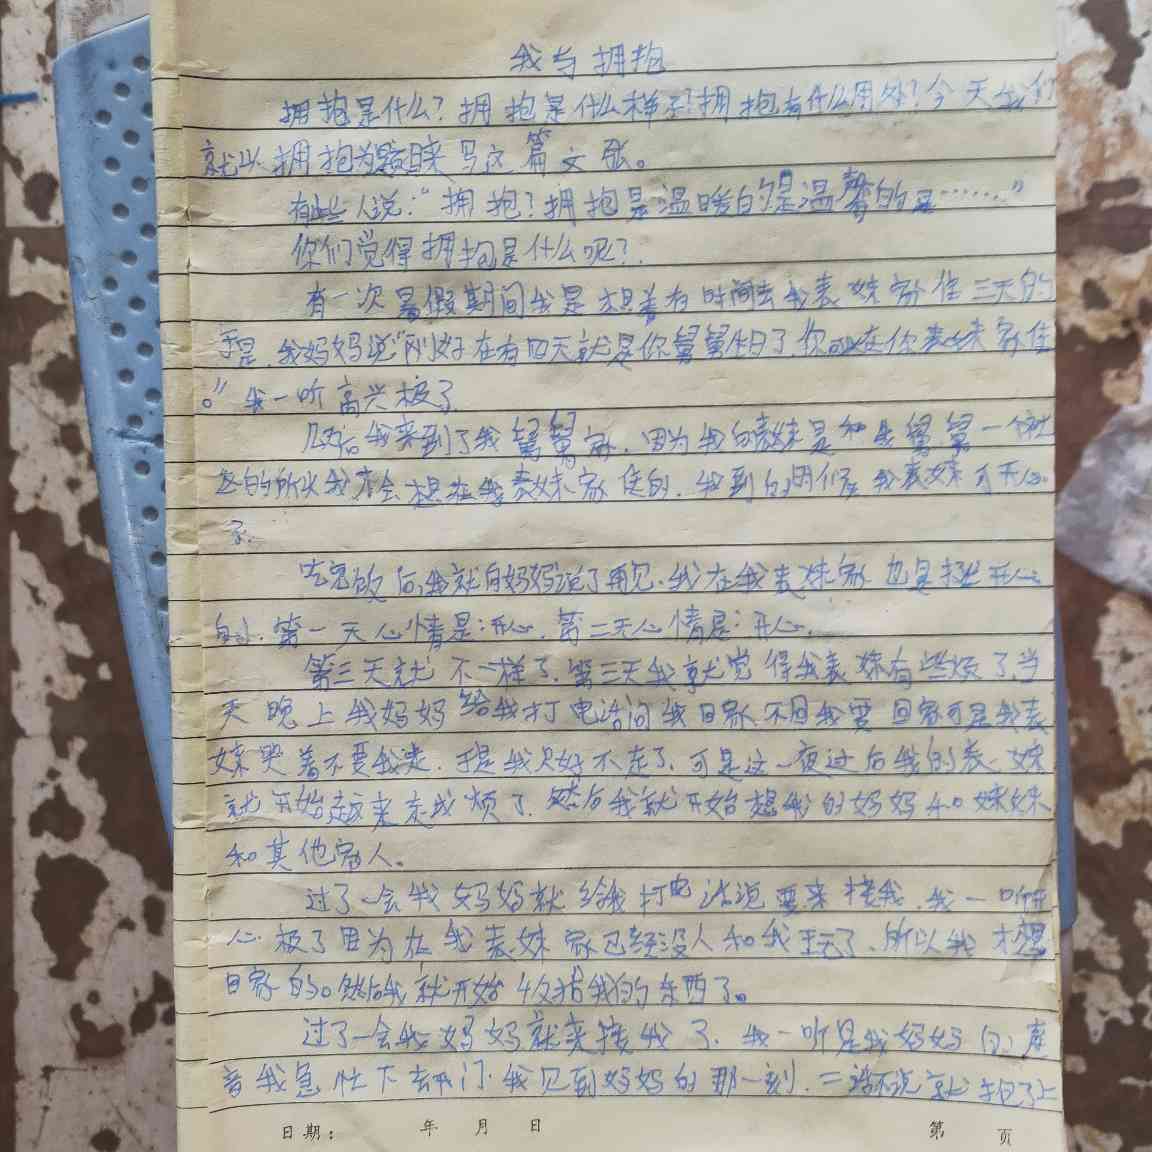 我与拥抱
拥抱是什么？拥抱是什么样子？拥抱有什么用处？今天我们
就以拥抱为题来写这篇文张。
有些人说：“拥抱？拥抱是温暖的是温馨的是……”
你们觉得拥抱是什么呢？
有一次暑假期间我是想着有时间去我表妹家住三天的
于是，我妈妈说“刚好在有四天就是你舅舅生日了，你可以在你表妹家住
。”我一听高兴极了，
几天后我来到了我舅舅家，因为我的表妹是和我舅舅一个村
的所以我才会想在我表妹家住的，我到的时候我表妹可开心
了，
吃完饭后我就向妈妈说了再见，我在我表妹家也是挺开心
的，第一天心情是：开心，第二天心情是：开心，
第三天就不一样了，第三天我就觉得我表妹有些烦了，当
天晚上我妈妈给我打电话问我回家不回我要回家可是我表
妹哭着不要我走，于是我只好不走了，可是这一夜过后我的表妹
就开始越来越烦了，然后我就开始想我的妈妈和妹妹
和其他家人。
过了一会我妈妈就给我打电话说要来接我，我一听开
心极了因为在我表妹家已经没人和我玩了，所以我才想
回家的。然后我就开始收拾我的东西了。
过了一会我妈妈就来接我了，我一听是我妈妈的声
音我急忙下去开门，我见到妈妈的那一刻，二话不说就抱了上
日期： 年 月 日
第 页